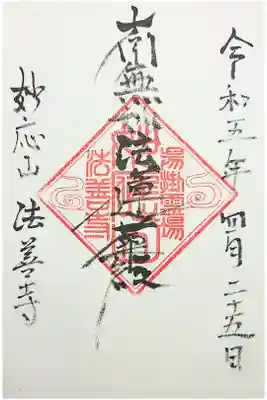 令和五年 四月二十五日
南無妙法蓮華経
妙応山 法善寺
法善寺